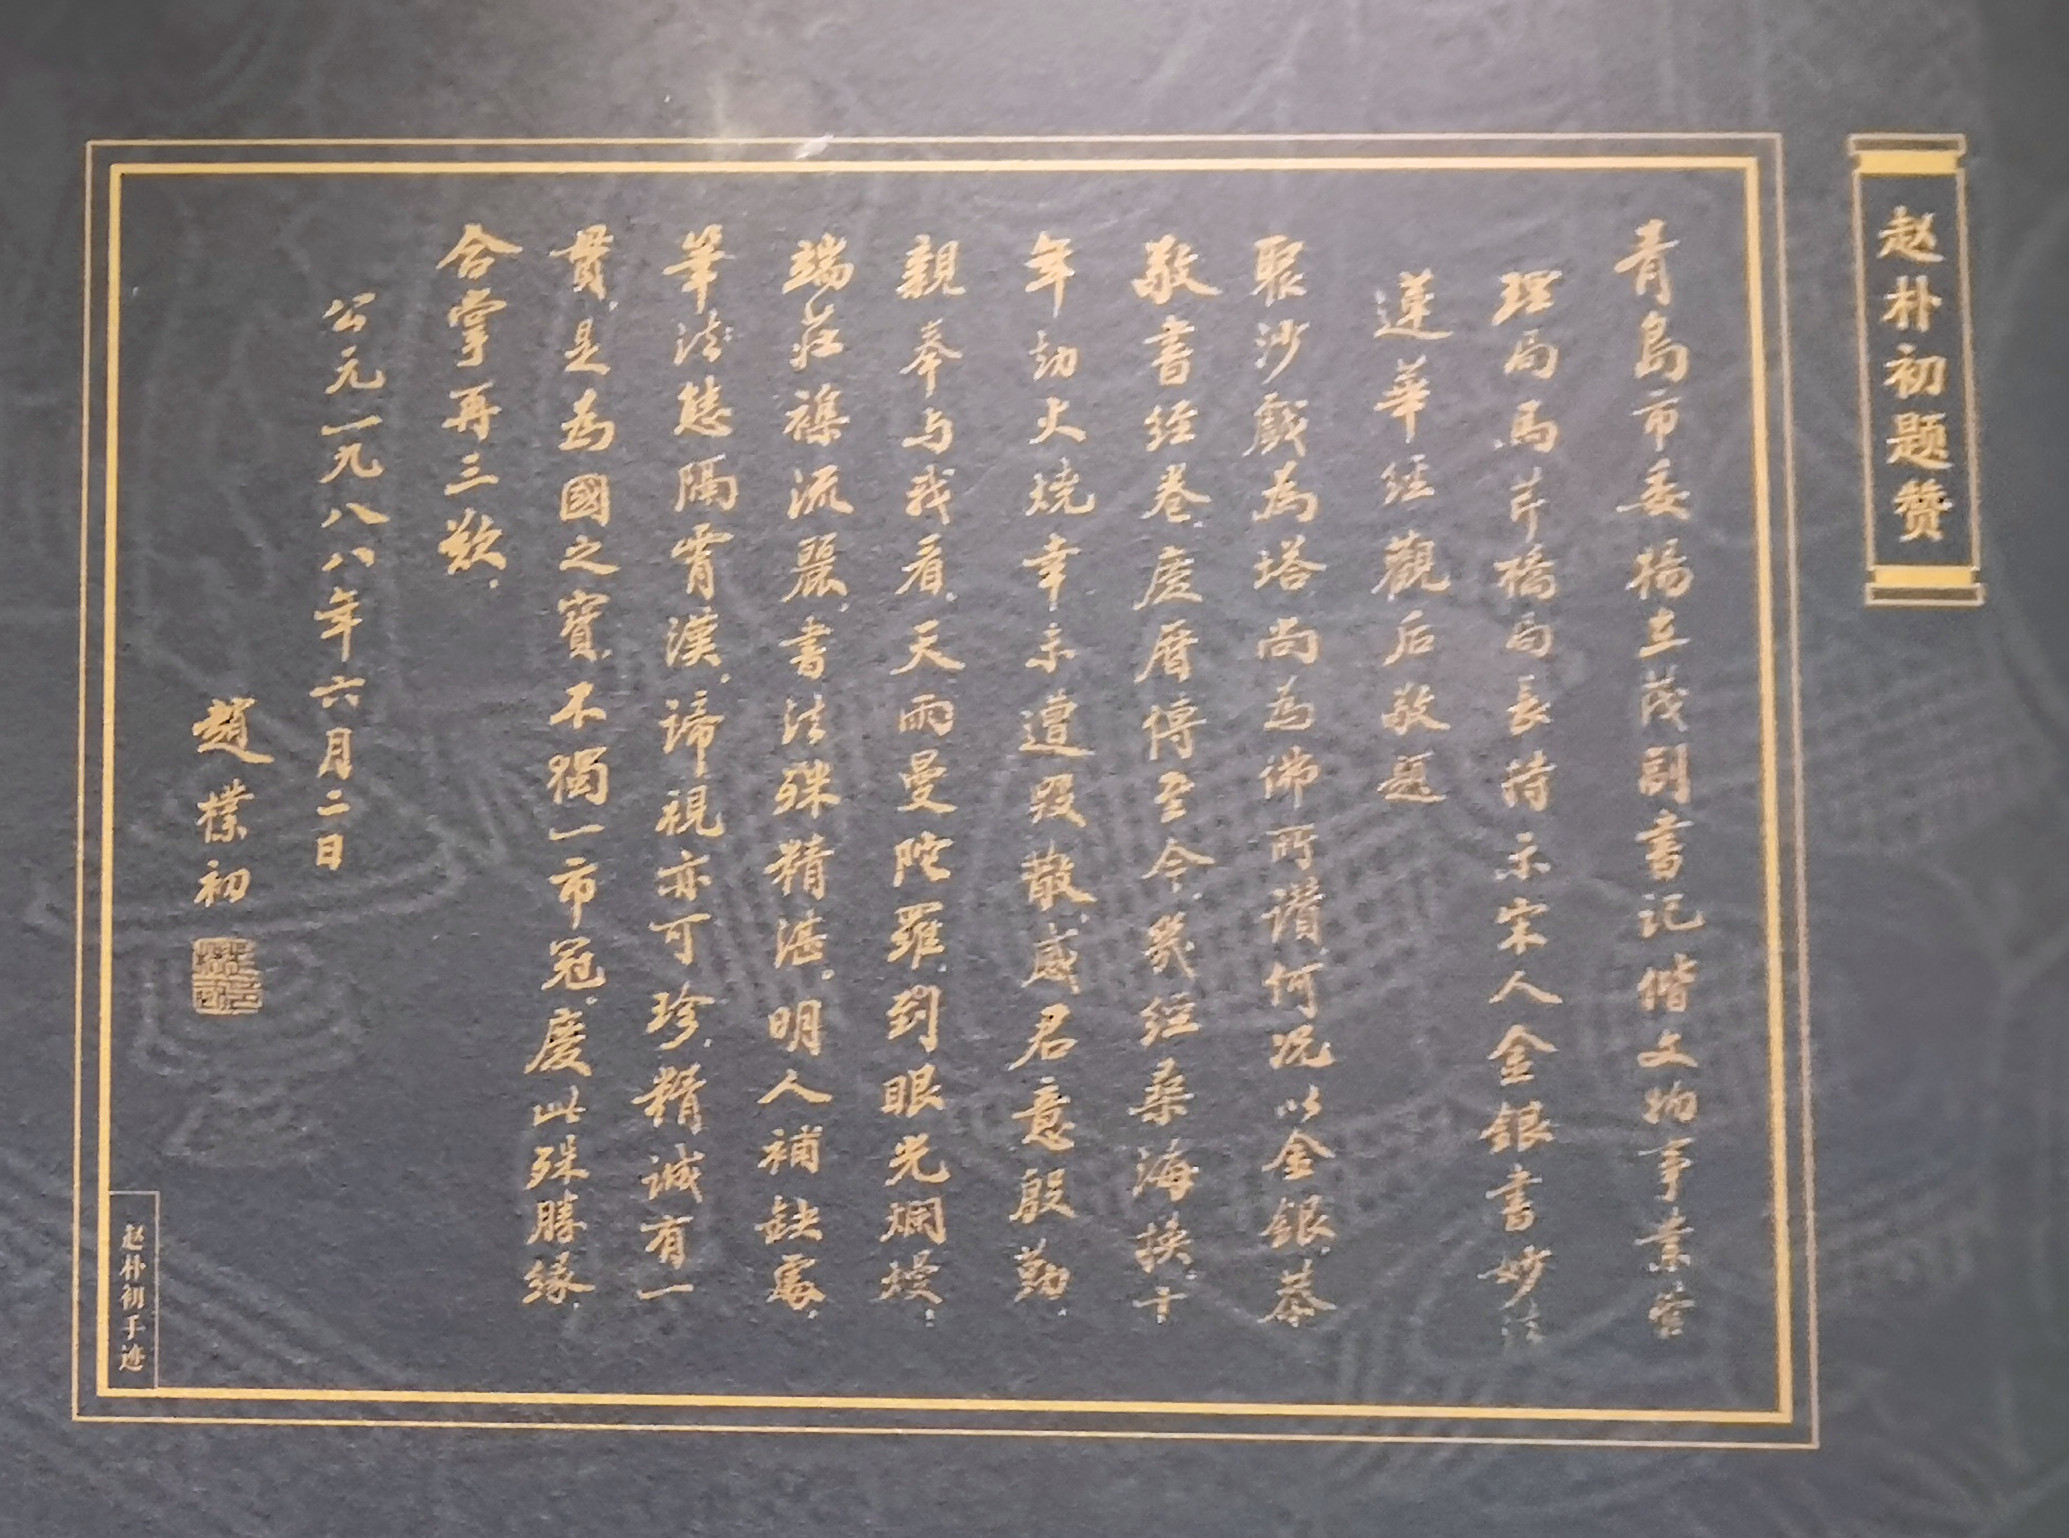 赵朴初题赞
青島市委楊立茂副書記偕文物事業管
理局馬芹橋局長持示宋人金銀書妙法
蓮華經觀后敬題
聚沙戲為塔尚為佛所讚何況以金銀恭
敬書經卷度曆傳至今幾經桑海换十
年劫火燒幸未遭毀散感君意殷勤
親奉与我看天雨曼陀羅到眼光爛熳
端莊襍流麗書法殊精湛明人補缺處
筆法態隔霄漢諦視亦可珍精誠有一
貫是為國之寶不獨一市冠慶此殊勝緣
合掌再三歎
公元一九八八年六月二日
趙樸初
赵朴初手迹